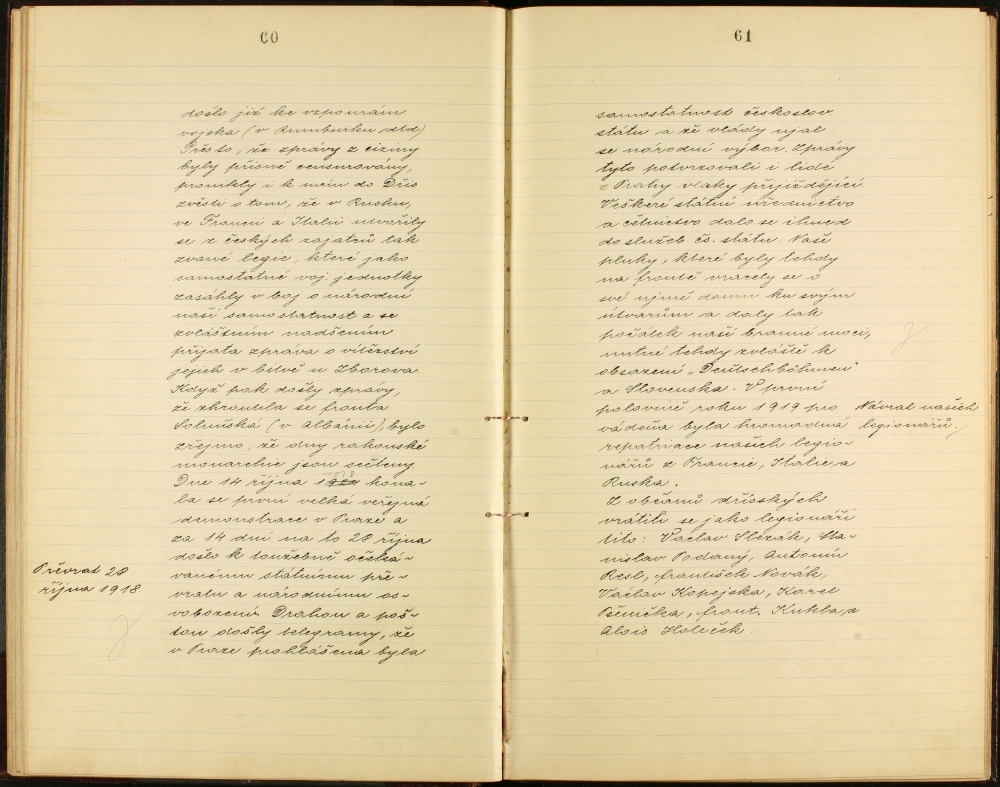 60
došlo již ke vzpourám
vojska (v Rumburku atd)
Přes to, že zprávy z ciziny
byly přísně censurovány,
pronikly i k nám do Dřís
zvěsti o tom, že v Rusku,
ve Francii a Italii utvořily
se z českých zajatců tak
zvané legie, které jako
samostatné voj. jednotky
zasáhly v boj o národní
naši samostatnost a se
zvláštním nadšením
přijata zpráva o vítězství
jejich v bitvě u Zborova
Když pak došly zprávy,
že zhroutila se fronta
Soluňská (v Albánii), bylo
zřejmo, že dny rakouské
monarchie jsou sečteny.
Dne 14 října 1918 kona-
la se první velká veřejná
demonstrace v Praze a
za 14 dní na to 28 října
došlo k toužebně očeká-
Převrat 28
října 1918
vanému státnímu pře-
vratu a národnímu os-
vobození. Drahou a poš-
tou došly telegramy, že
v Praze prohlášena byla
61
samostatnost českoslov.
státu a že vlády ujal
se národní výbor. Zprávy
tyto potvrzovali i lidé
z Prahy vlaky přijíždějící.
Veškeré státní úřednictvo
a četnictvo dalo se ihned
do služeb čs. státu. Naše
pluky, které byly tehdy
na frontě vracely se o
své újmě domu ku svým
útvarům a daly tak
počátek naší branné moci,
nutné tehdy zvláště k
obsazení „Deutschböhmen"
a Slovenska. V první
polovině roku 1919 pro
Návrat našich
legionářů.
váděna byla hromadná
repatriace našich legio-
nářů z Francie, Italie, a
Ruska.
Z občanů dřísských
vrátili se jako legionáři
tito: Václav Slezák, Sta-
nislav Podaný, Antonín
Resl, František Novák,
Václav Kopejska, Karel
Pšenička, Frant. Kuhla, a
Alois Holeček.